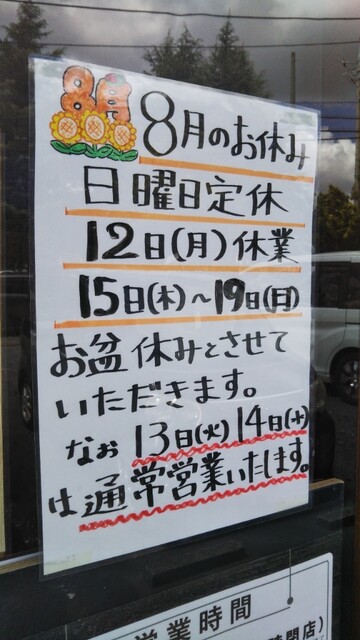 8月
8月のお休み
日曜日定休
12日(月)休業
15日(木)～19日(月)
お盆休みとさせて
いただきます。
なお 13日(火)14日(水)
は通常営業いたします。
営業時間
閉店)